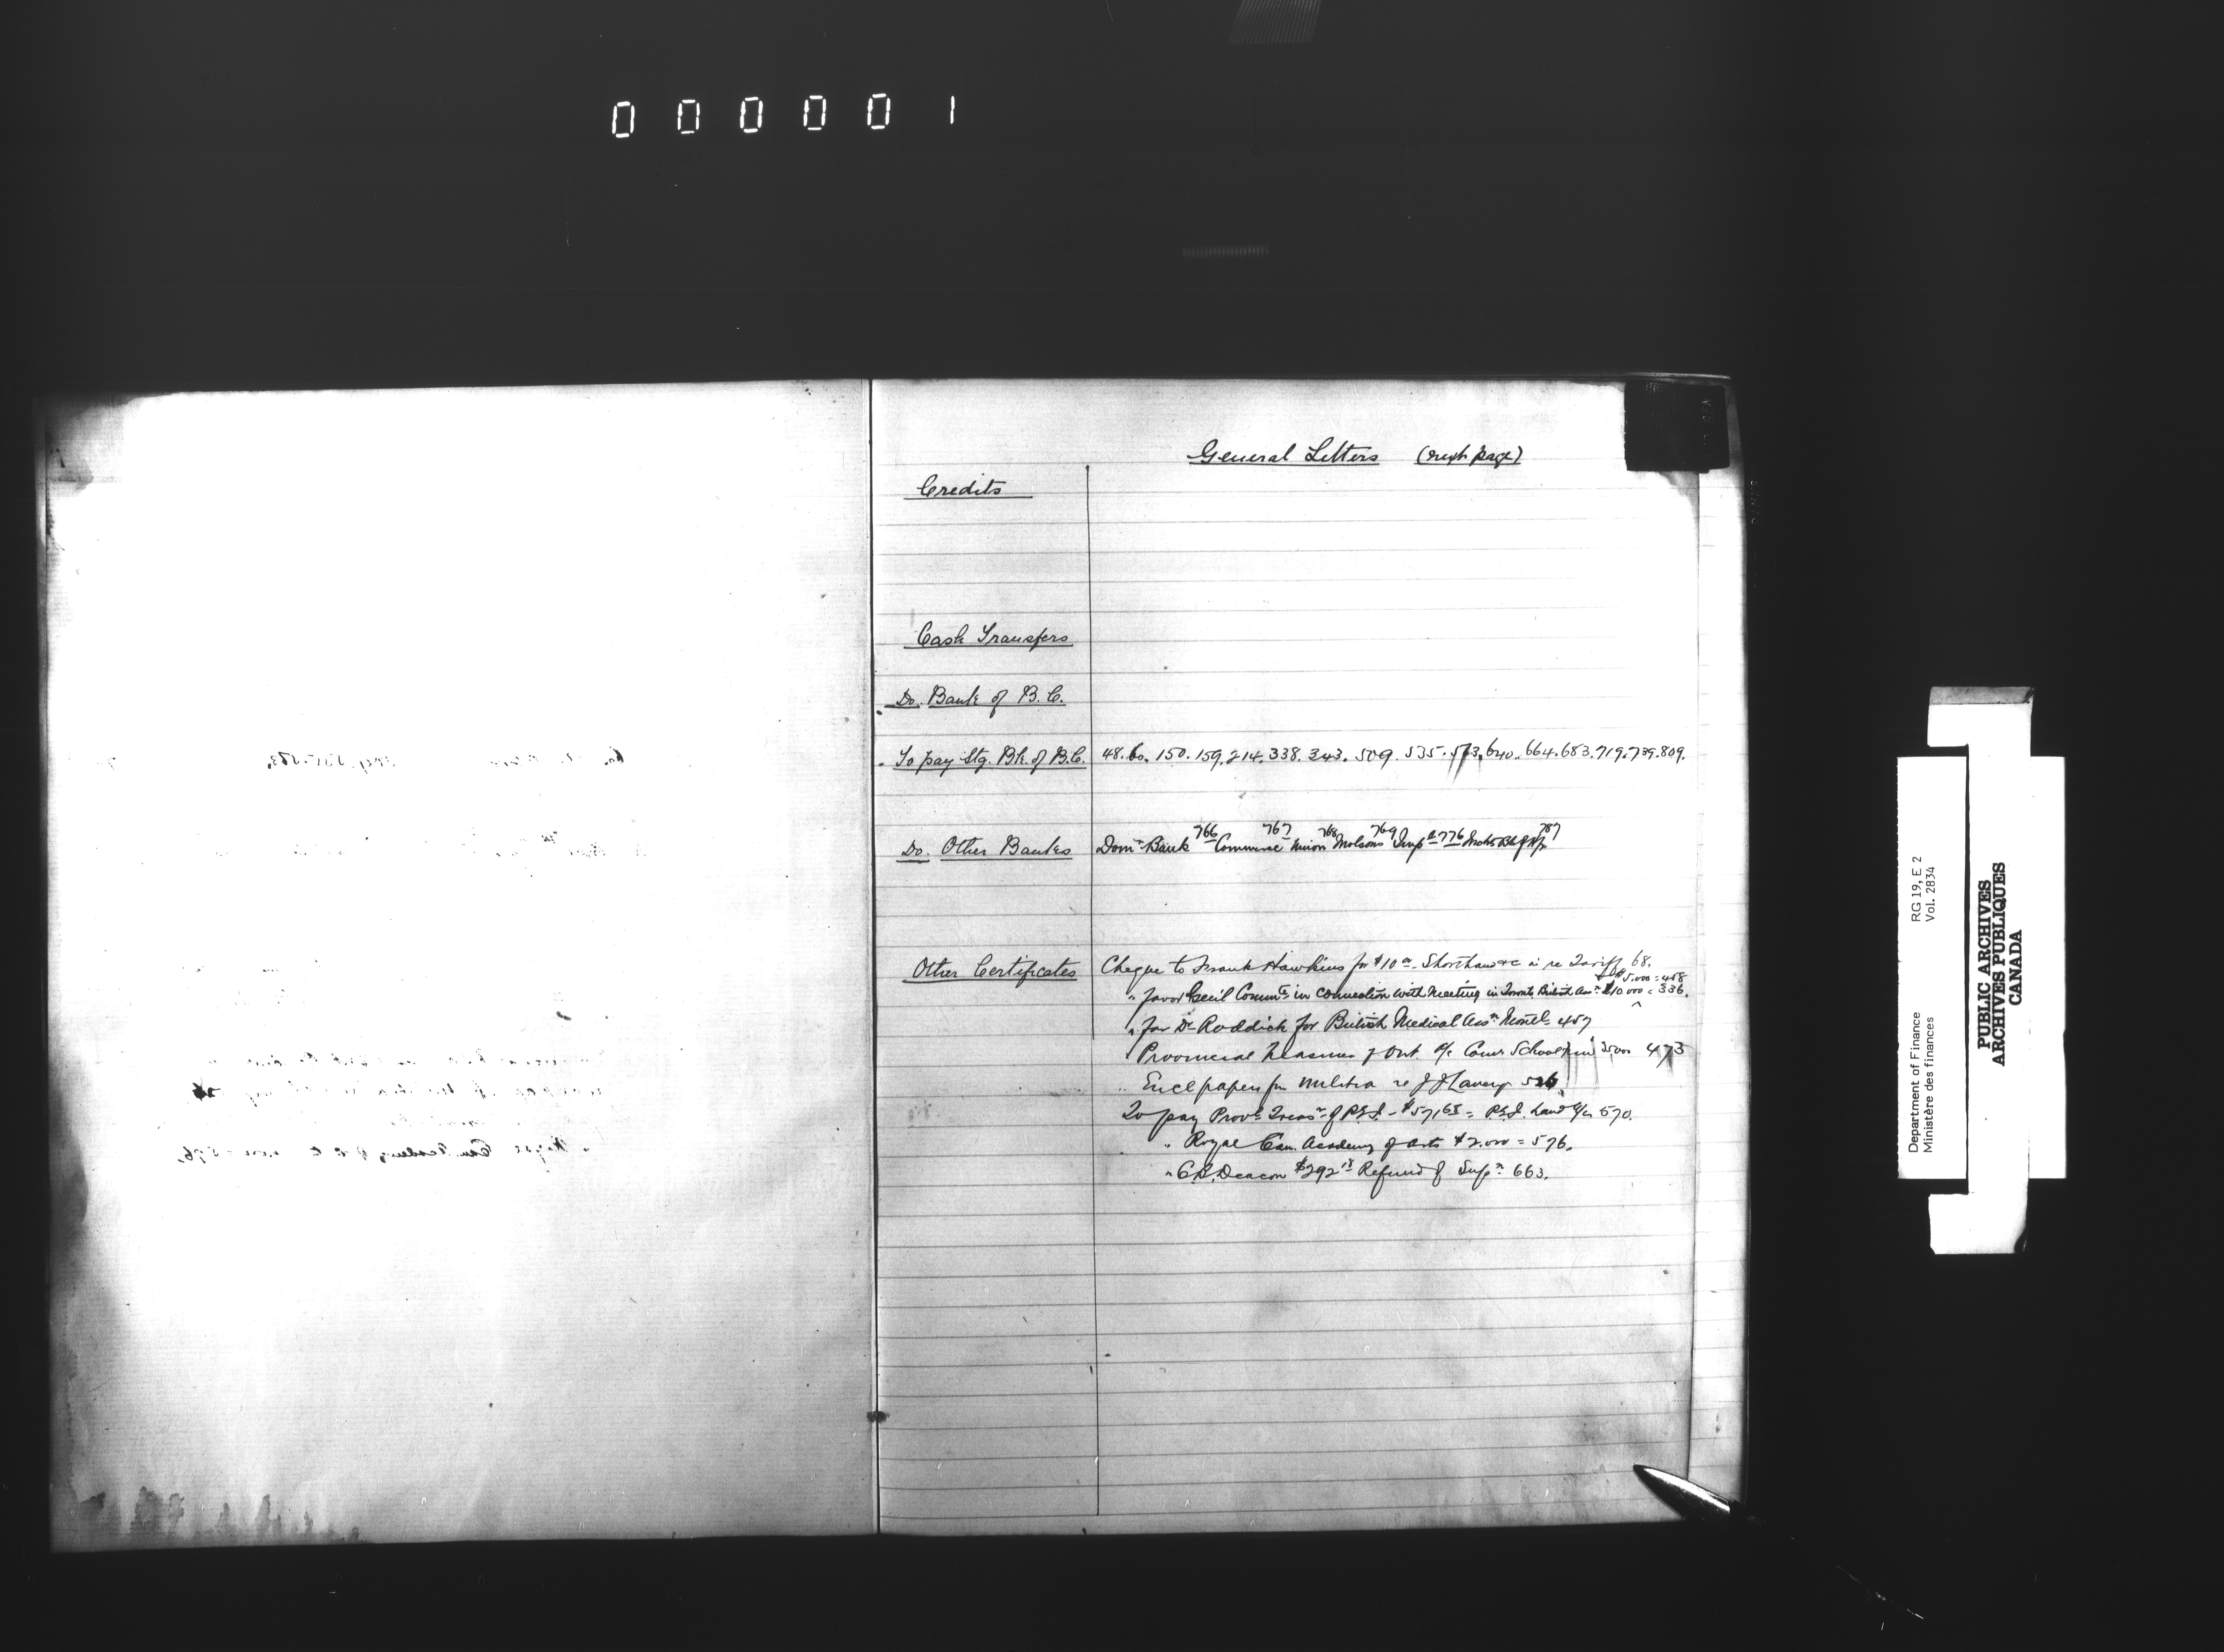 000001
General Letters (next page)
Credits
Cash Transfers
Do. Bank of B.C.
To pay Stg. Bk. of B.C. 48. 60. 150. 159. 214. 338. 343. 509. 535. 573. 640. 664. 683. 719. 739. 809.
766 767 768 769 787
Do. Other Banks Domn Bank Commerce Union Molsons Impl 776
Other Certificates Cheque to Frank Hawkins for $10 Shorthand &c in re Tariff 68.
$5.000 = 458
" favor Committee in connection with Meeting in Toronto British Assn $10.000 = 336.
" for Dr Roddick for British Medical Assn Montl 457
Provincial Treasurer of Ont. A/c Common School 2500 473
" Encl papers from Militia re J J Lavery 526
To pay Provl Treasr of P.E.I. P.E.I. Land A/c 570.
" Royal Can. Academy of Arts $2.000 = 576.
" C.R. Deacon $292 Refund of Supn 663.
Department of Finance RG 19, E 2
Ministère des finances Vol. 2834
PUBLIC ARCHIVES
ARCHIVES PUBLIQUES
CANADA